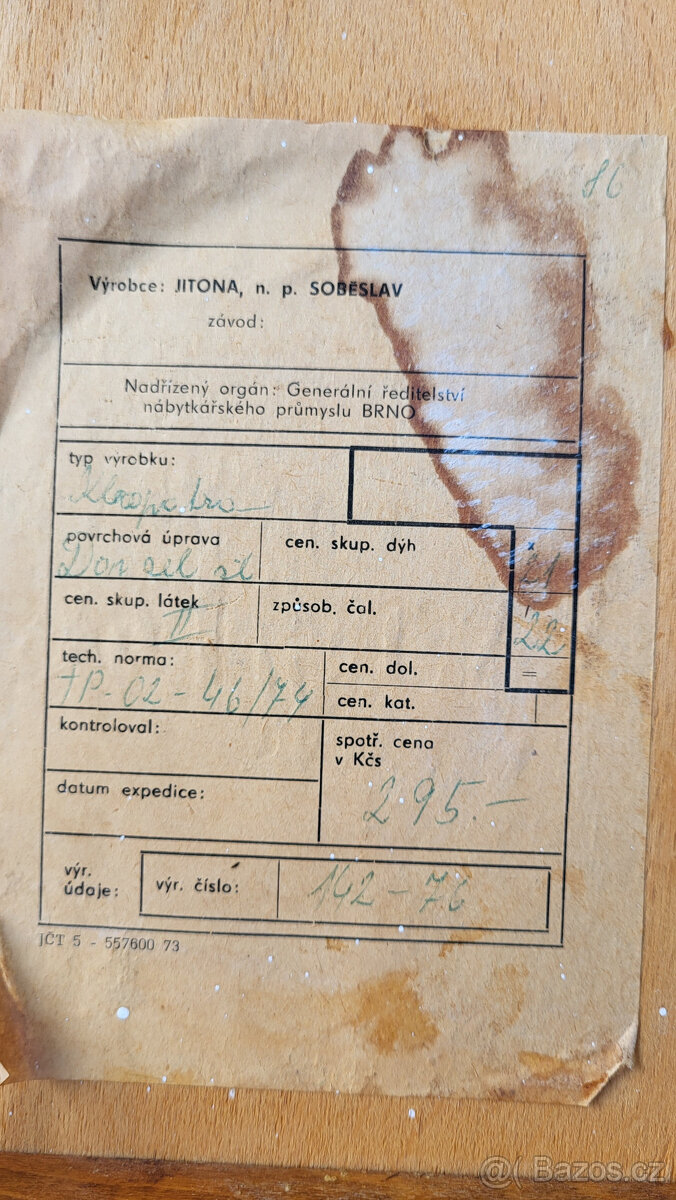 86
Výrobce: JITONA, n. p. SOBĚSLAV
závod:
Nadřízený orgán: Generální ředitelství
nábytkářského průmyslu BRNO
typ výrobku:
Kleopatra
povrchová úprava
cen. skup. dýh
x
21
cen. skup. látek
II
způsob. čal.
22
tech. norma:
TP-02-46/74
cen. dol.
=
cen. kat.
kontroloval:
spotř. cena
v Kčs
295.-
datum expedice:
výr.
údaje:
výr. číslo:
142-76
JČT 5 - 557600 73
@ Bazos.cz